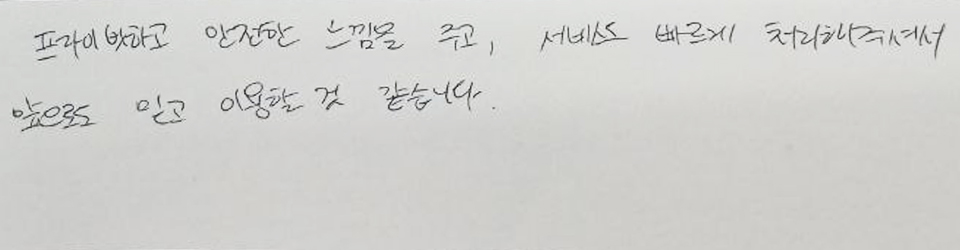 프라이빗하고 안전한 느낌을 주고, 서비스도 빠르게 처리해주셔서
앞으로도 믿고 이용할 것 같습니다.